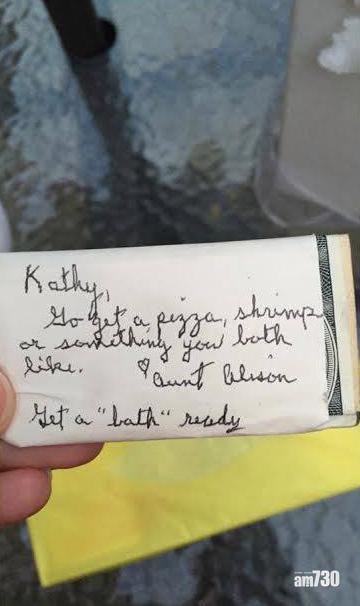 Kathy,
Go get a pizza, shrimp
or something you both
like. ♡ Aunt Alison
Get a "bath" ready
am730